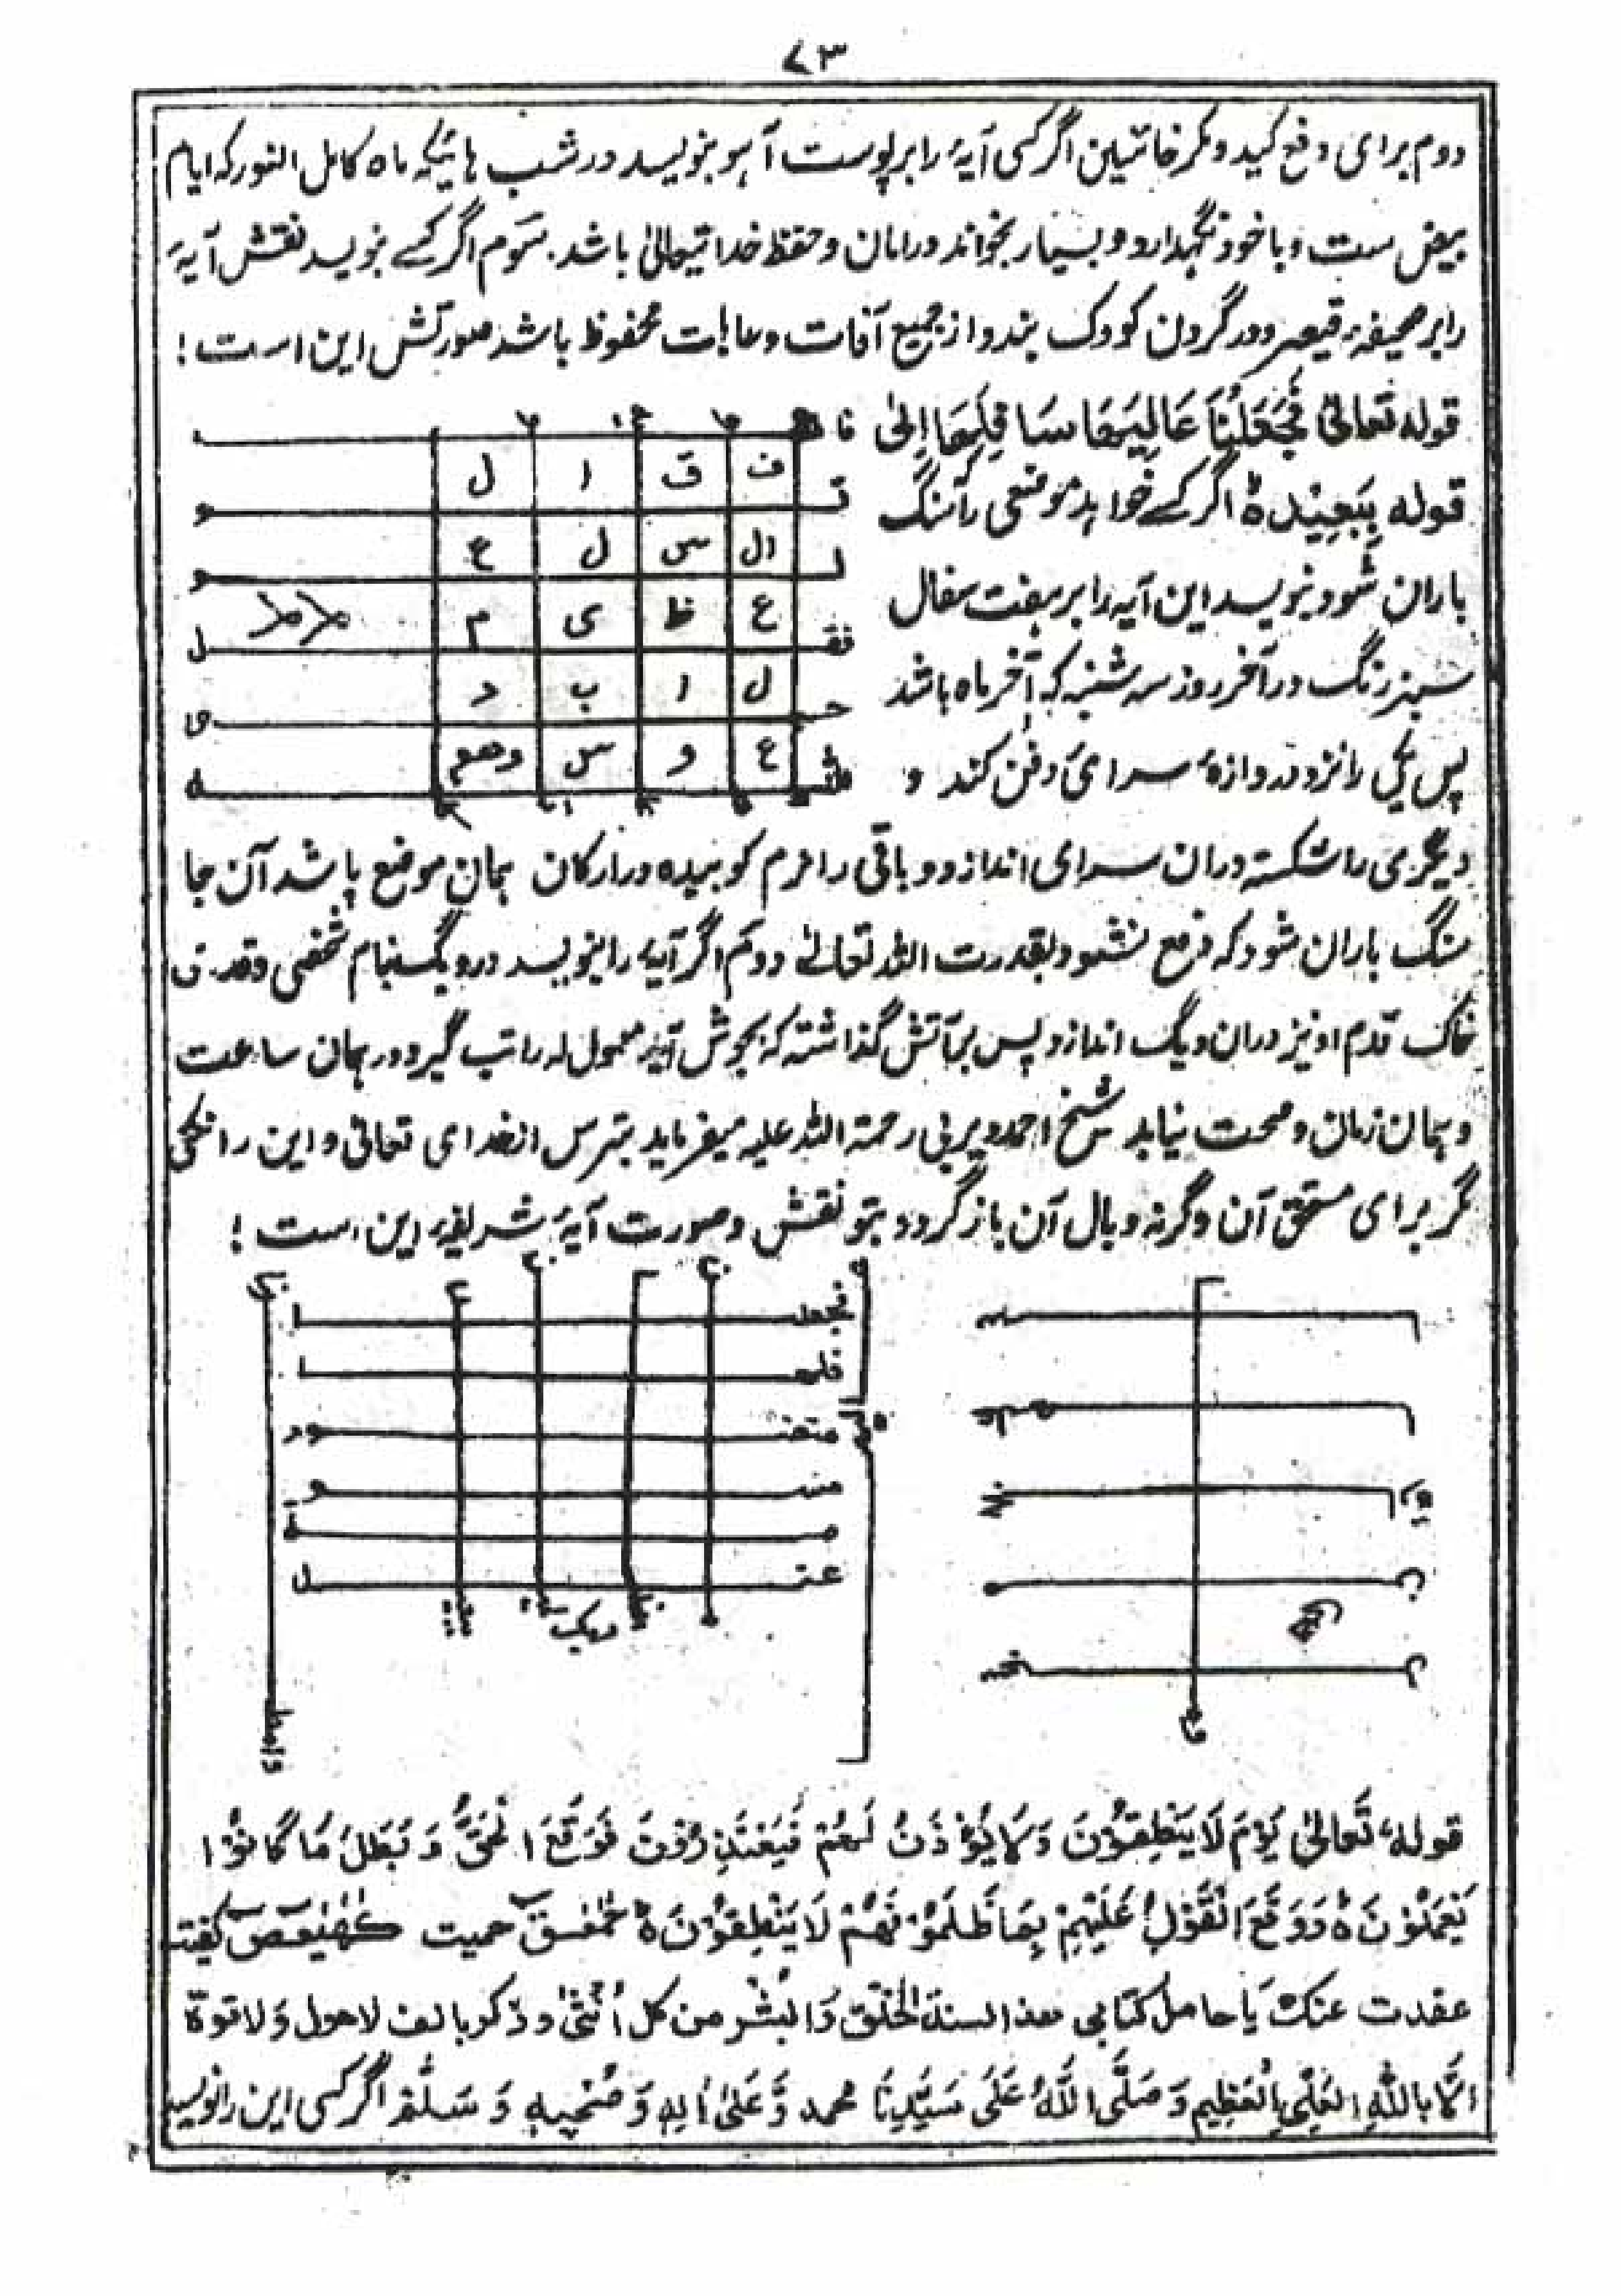 ۷۳
دوم برای دفع کید و مکر خائنین اگر کسی آیهٔ را بر پوست آهو بنویسد در شب هائیکه ماه کامل النور که ایام
بیض ست و با خود نگهدارد و بسیار بخواند در امان و حفظ خدا تیعالیٰ باشد. سوم اگر کسے بنویسد نقش آیهٔ
را بر صحیفهٔ قیصر و در گردن کودک بندد از جمیع آفات و عاہات محفوظ باشد صورتش این است :
قوله تعالیٰ فَجَعَلْنَا عَالِیَهَا سَافِلَهَا اِلیٰ
قوله بِبَعِیْدٍ ه اگر کسے خواہد موضعی را سنگ
باران شود بنویسد این آیه را بر ہفت سفال
سبز رنگ در آخر روز سه شنبه که آخر ماه باشد
پس یکی را نزد دروازهٔ سرای دفن کند و
ف ق ا ل
ال س ل ع
ع ظ ی م
ل ا ب د
ع و س
دیگری را شکسته دران سرای اندازد و باقی را نرم کوبیده در ارکان ہمان موضع پاشد آن جا
سنگ باران شود که فرع نشود بقدرت اللّٰه تعالےٰ دوم اگر آیه را بنویسد در دیگ بنام شخصی و قدری
خاک قدم او نیز دران دیگ اندازد پس بر آتش گذاشته که بجوش آید معمول له را تب گیرد در ہمان ساعت
و ہمان زمان و صحت نیابد شیخ احمد دیربی رحمة اللّٰه علیه میفرماید بترس از خدای تعالی و این را نکنی
مگر برای مستحق آن وگرنه وبال آن باز گردد بتو نقش و صورت آیهٔ شریفه این ست :
دیک
قوله، تَعالیٰ یَوْمَ لَا یَنْطِقُوْنَ وَ لَا یُؤْذَنُ لَهُمْ فَیَعْتَذِرُوْنَ فَوَقَعَ الْحَقُّ وَ بَطَلَ مَا کَانُوْا
یَعْمَلُوْنَ ه وَوَقَعَ الْقَوْلُ عَلَیْهِمْ بِمَا ظَلَمُوْ فَهُمْ لَا یَنْطِقُوْنَ ه حٰمٓعسق حمیت کٓهٰیٰعٓصٓ کفیت
عقدت عنک یَا حامل کتابی هذا السنة الخَلَق وَالبَشر من کل اُنْثیٰ و ذکر بالف لاحول وَ لا قوة
اِلّا بِاللّٰهِ الْعَلِیِّ الْعَظِیم وَ صَلَّی اللّٰهُ عَلَی سَیِّدِنَا محمد وَّ عَلیٰ اٰلِهٖ وَ صَحْبِهٖ وَ سَلَّم اگر کسی این را نویسد